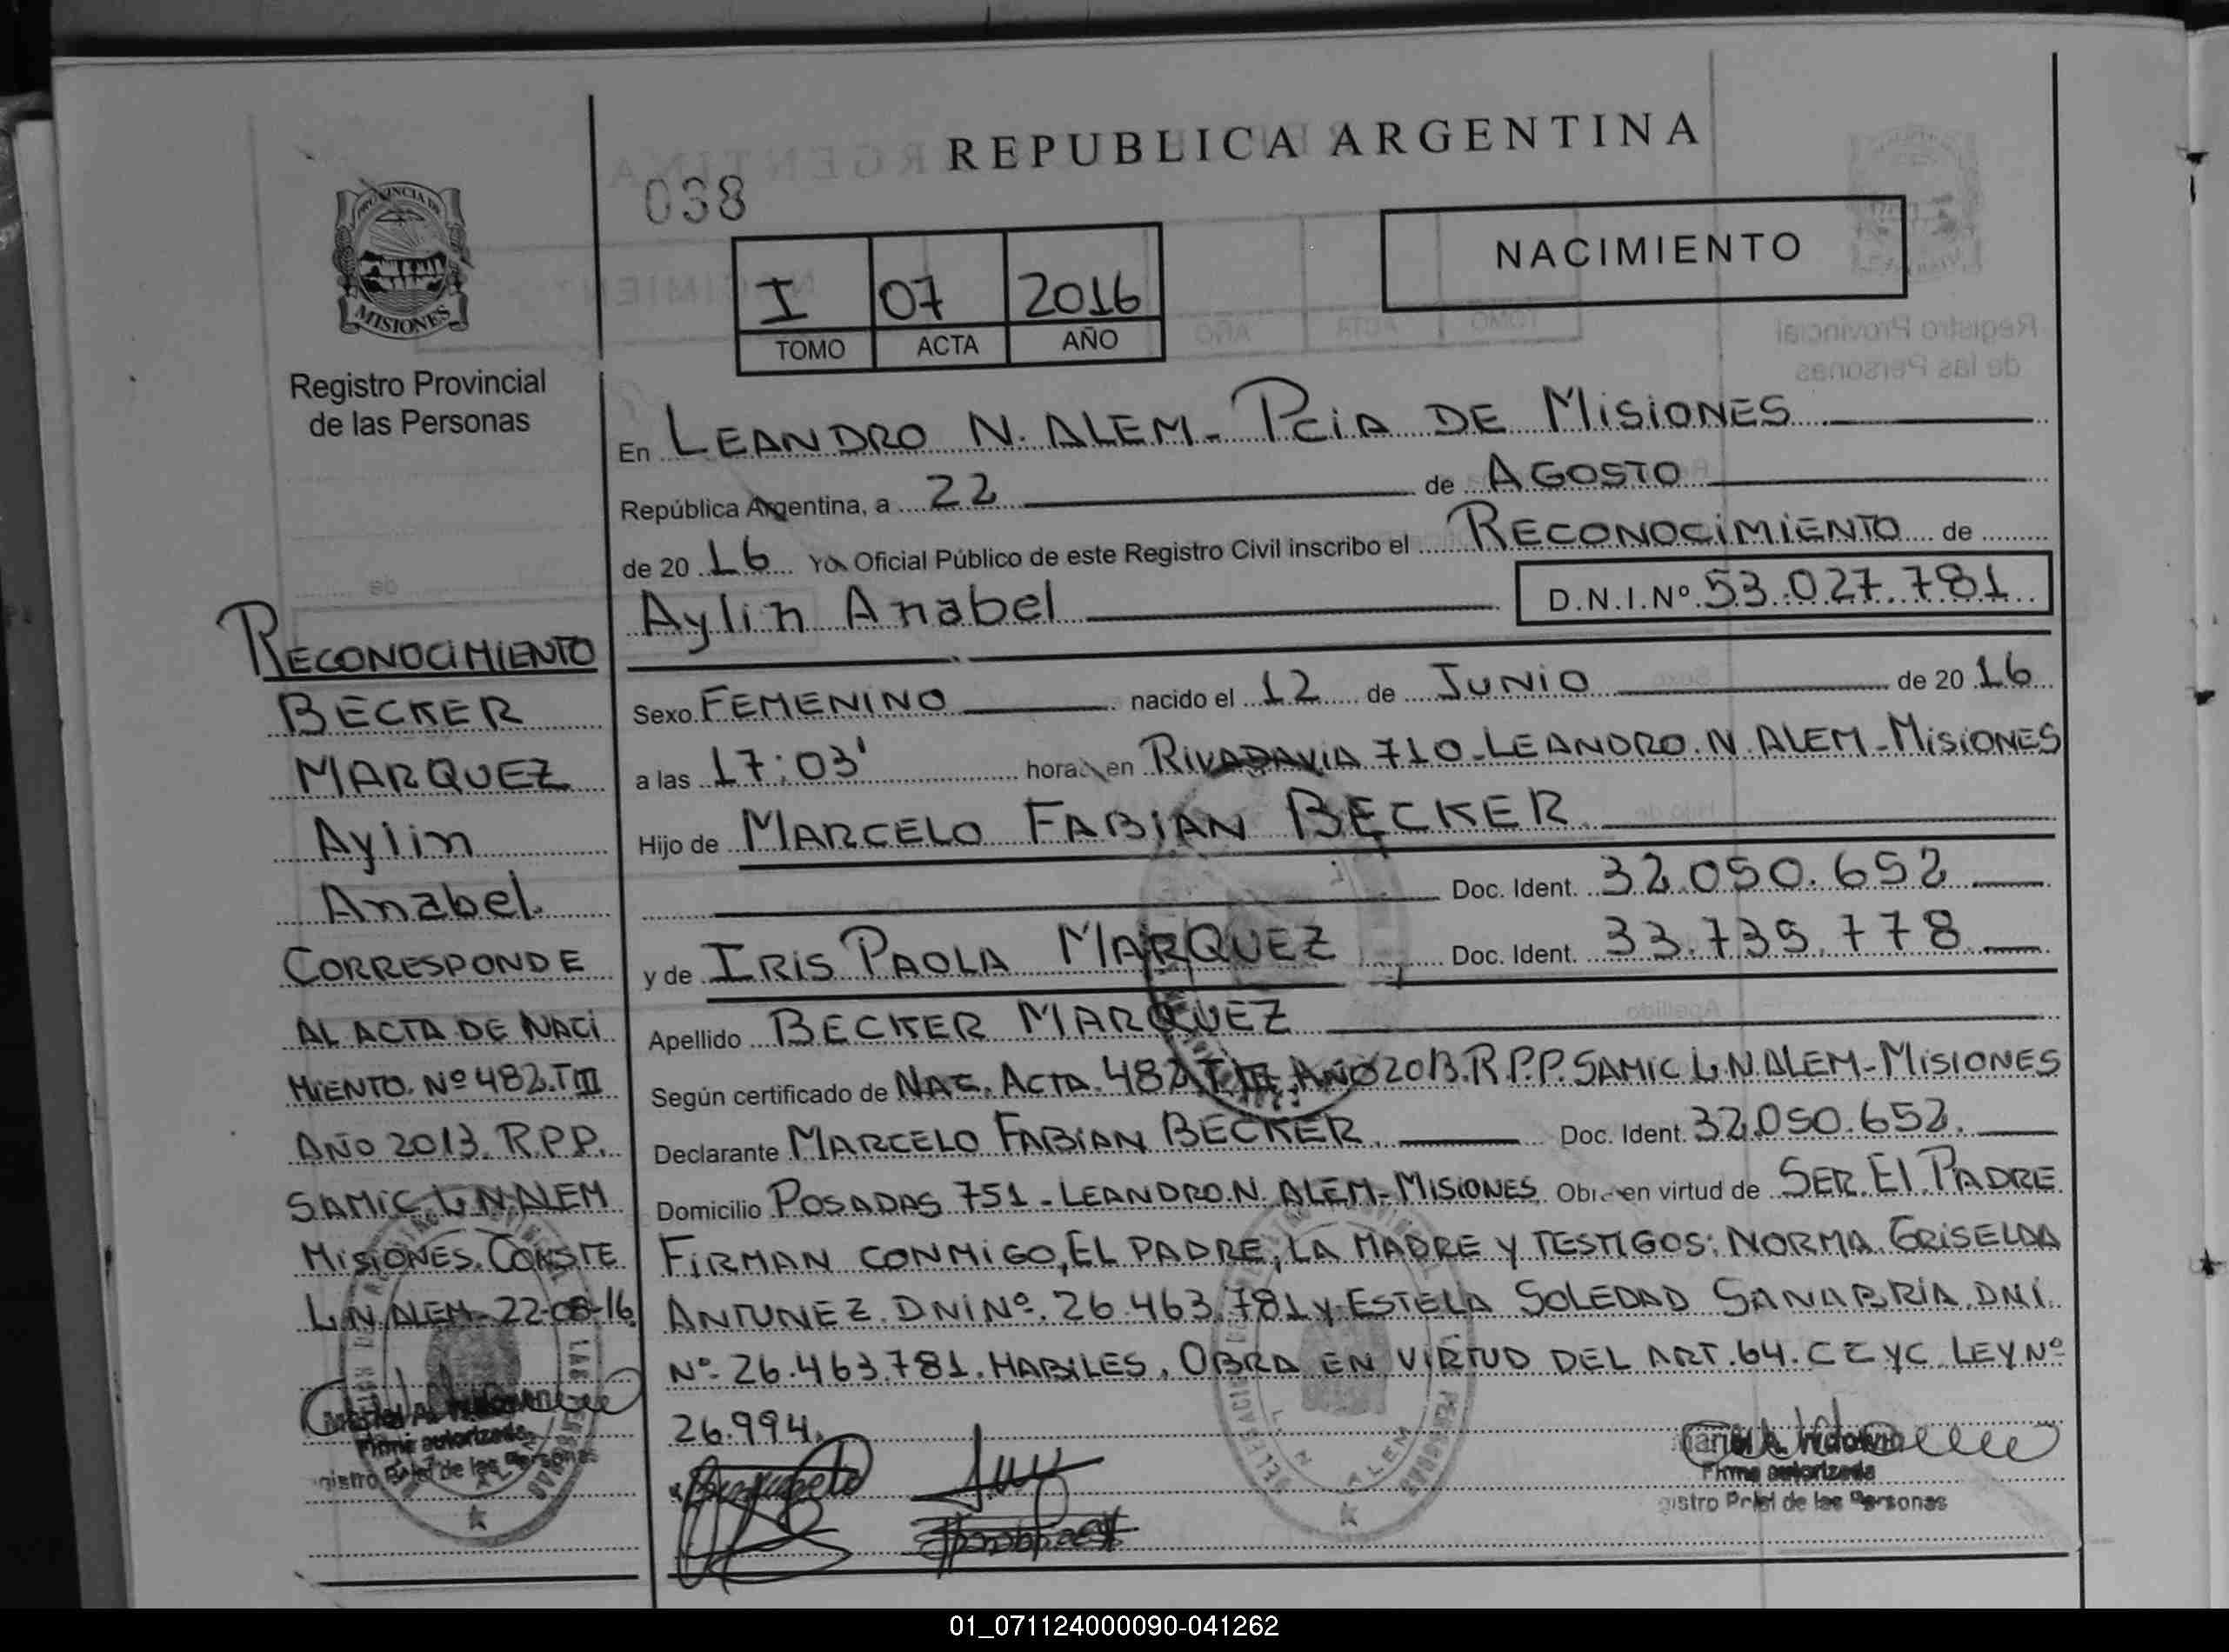 REPUBLICA ARGENTINA
038
PROVINCIA DE
MISIONES
Registro Provincial
de las Personas
I 07 2016
TOMO ACTA AÑO
NACIMIENTO
En LEANDRO N. ALEM - PCIA DE MISIONES
República Argentina, a 22 de AGOSTO
de 20 16 Yo Oficial Público de este Registro Civil inscribo el RECONOCIMIENTO de
Aylin Anabel D.N.I.Nº 53.027.781
Sexo FEMENINO nacido el 12 de JUNIO de 20 16
a las 17:03' horas en RIVADAVIA 710 - LEANDRO.N.ALEM - MISIONES
Hijo de MARCELO FABIAN BECKER
Doc. Ident. 32.050.652
y de IRIS PAOLA MARQUEZ Doc. Ident. 33.735.778
Apellido BECKER MARQUEZ
Según certificado de NAC. ACTA 482 T III AÑO 2013. R.P.P. SAMIC L.N.ALEM - MISIONES
Declarante MARCELO FABIAN BECKER Doc. Ident. 32.050.652.
Domicilio POSADAS 751 - LEANDRO.N. ALEM - MISIONES Obra en virtud de SER El PADRE
FIRMAN CONMIGO, EL PADRE, LA MADRE Y TESTIGOS: NORMA GRISELDA
ANTUNEZ. DNI Nº. 26.463.781 y ESTELA SOLEDAD SANABRIA. DNI.
Nº: 26.463.781. HABILES. OBRA EN VIRTUD DEL ART. 64. CCYC LEY Nº
26.994.
RECONOCIMIENTO
BECKER
MARQUEZ
Aylin
Anabel.
CORRESPONDE
AL ACTA DE NACI
MIENTO. Nº 482. T III
AÑO 2013. R.P.P.
SAMIC. L.N.ALEM
MISIONES. CONSTE
L.N.ALEM - 22-08-16
Firma autorizada
de las Personas
Firma autorizada
de las Personas
L N ALEM
01_071124000090-041262